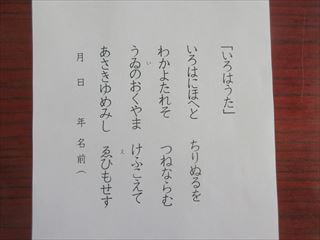 「いろはうた」
いろはにほへと ちりぬるを
わかよたれそ つねならむ
い
うゐのおくやま けふこえて
え
あさきゆめみし ゑひもせす
月 日 年 名前（